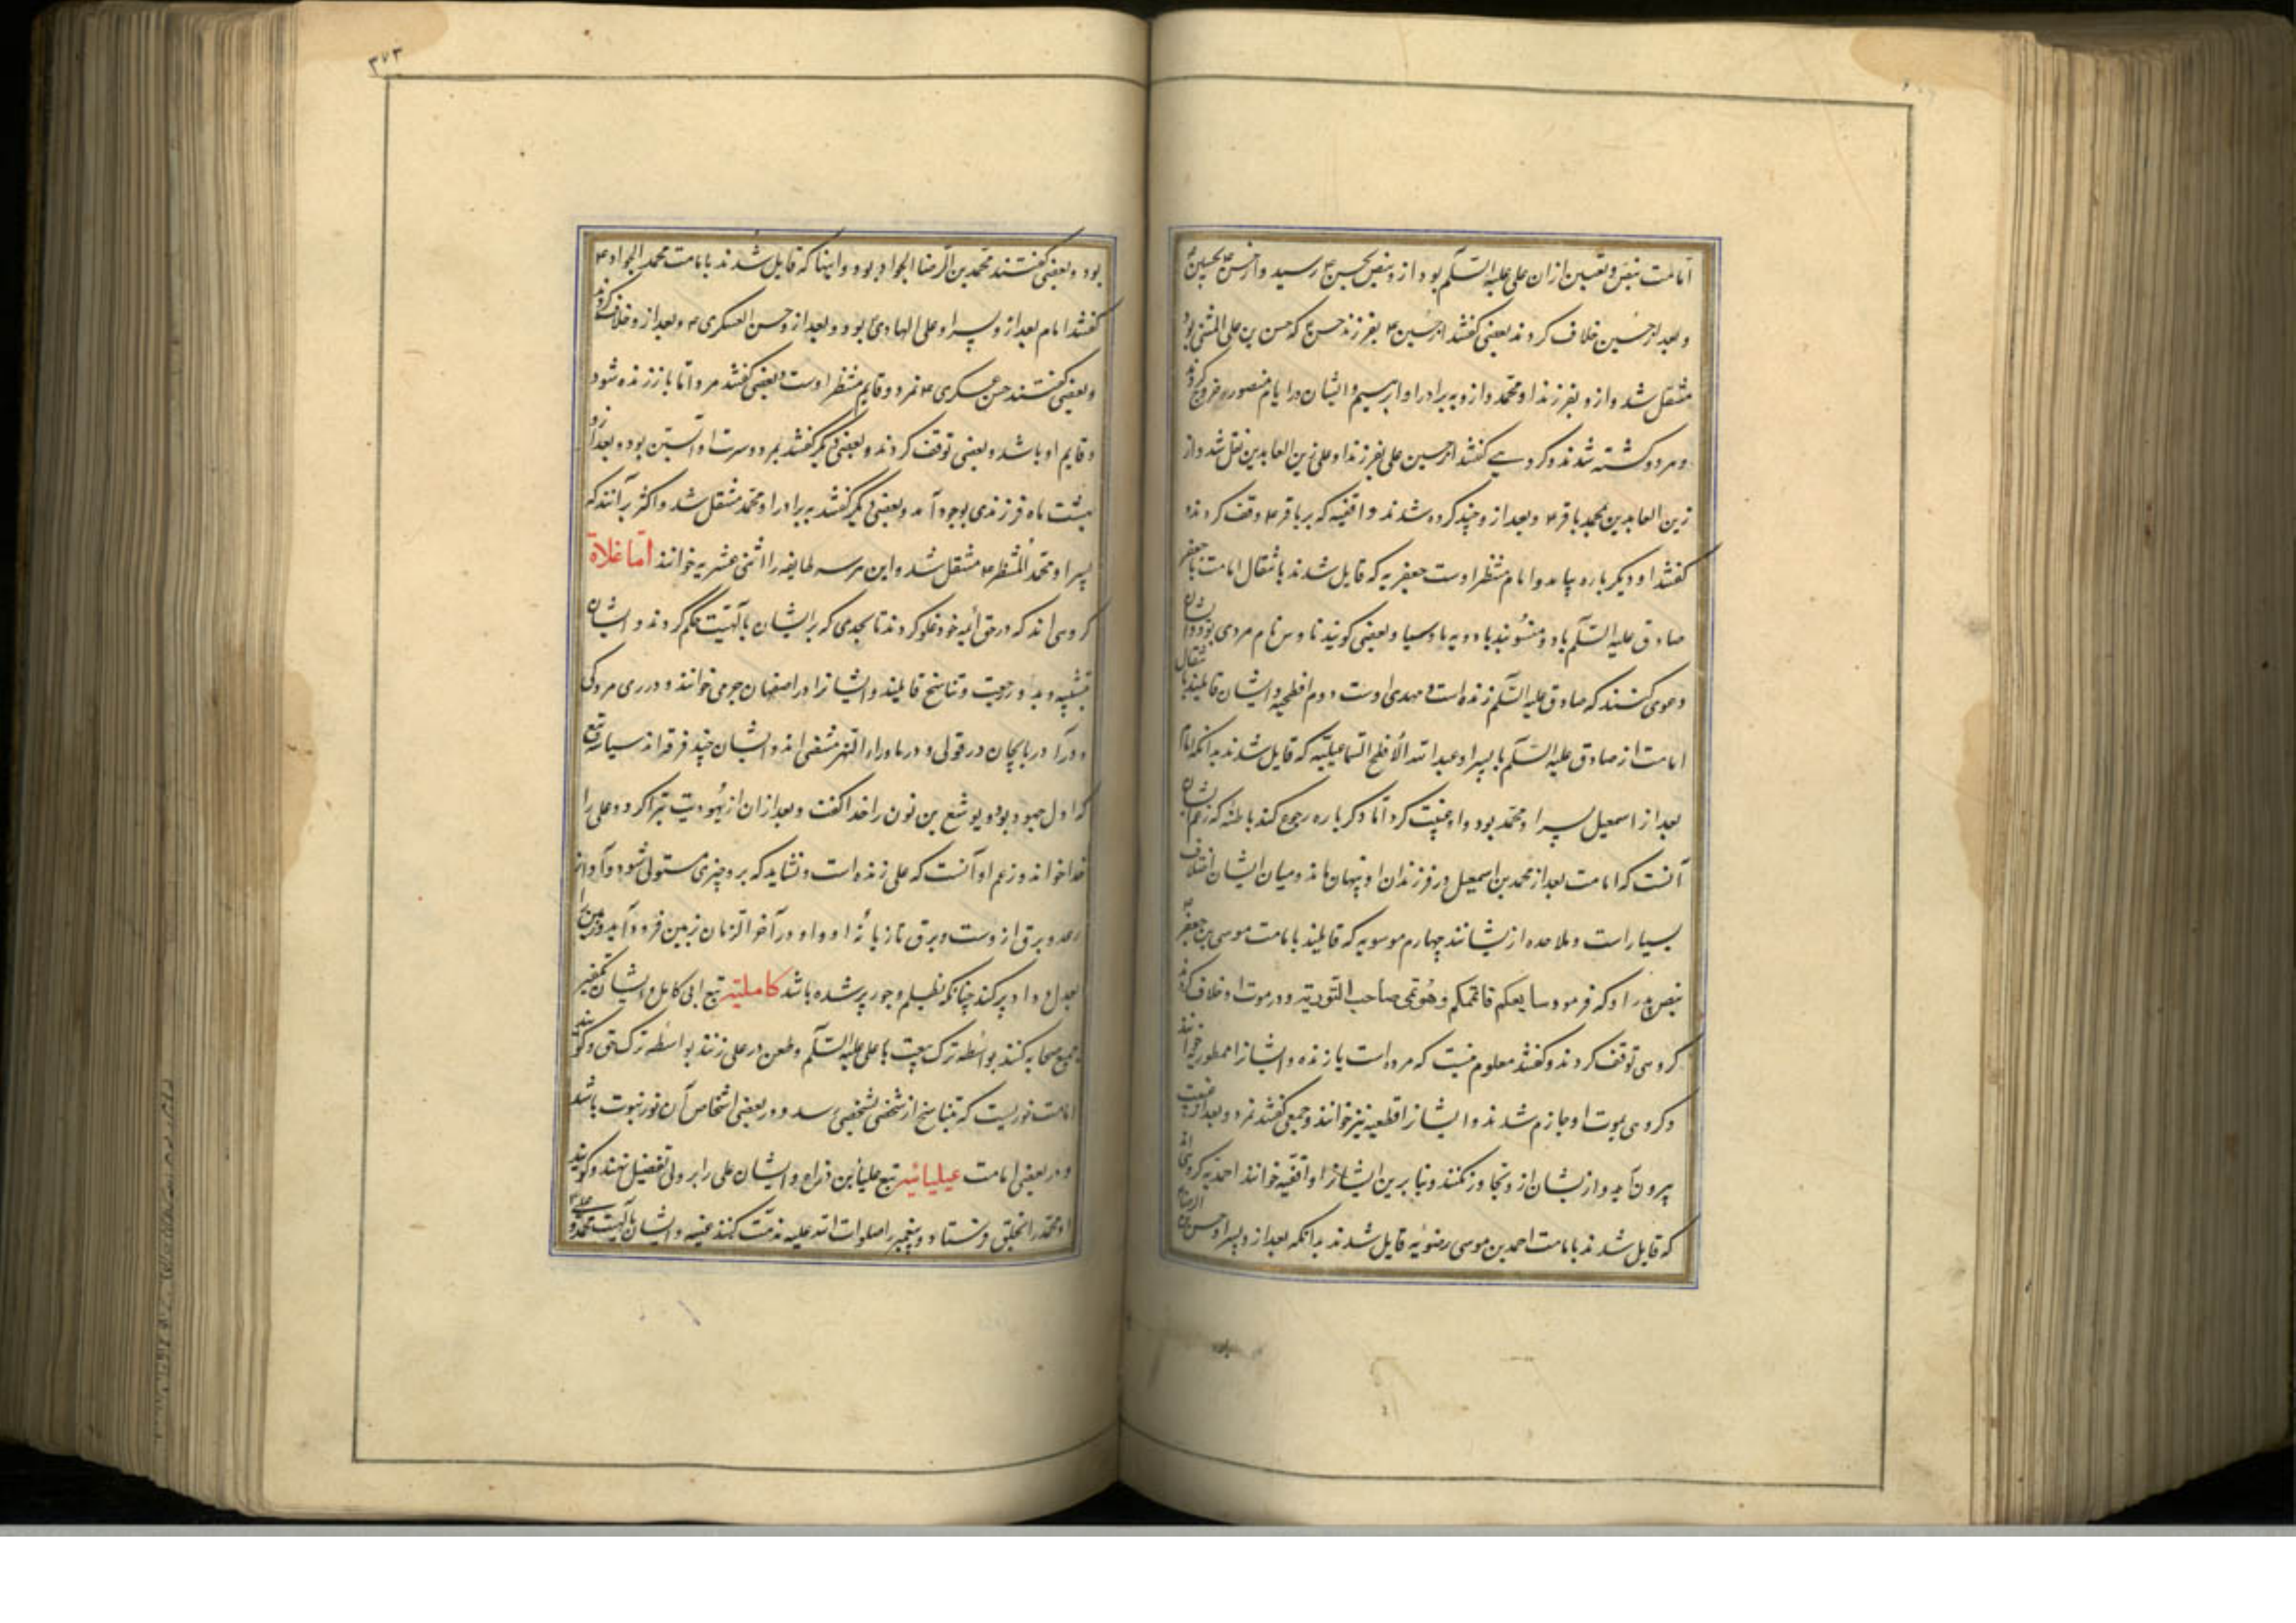 امامت بنص و تعیین ازان علی علیه السّلم بود از و بنص بحسن ع رسید و از حسن ع بحسین ع
و بعد از حسین خلاف کردند بعضی کفتند از حسین ع بفرزند حسن ع که حسن بن علی المثنی بود
منتقل شد و ازو بفرزند او محمد و ازو به برادر او ابرهیم و ایشان در ایام منصور خروج کردند
و هر دو کشته شدند و کروهی کفتند از حسین علی بفرزند او علی زین العابدین نقل شد و از
زین العابدین بمحمد باقر ع و بعد ازو چند کروه شدند واقفیه که بر باقر ع وقف کردند و
کفتند او دیکر باره بیاید و امام منتظر اوست جعفریه که قایل شدند بانتقال امامت با جعفر
صادق علیه السّلم باد و منسوبند یا و بعضی کویند ناوس نام مردی بود و ایشان
دعوی کنند که صادق علیه السّلم زنده است و مهدی اوست دوم افطحیه و ایشان قایلیند بانتقال
امامت از صادق علیه السّلم با پسر او عبد الله الأفطح اسماعیلیّه که قایل شدند بدانکه امام
بعد از اسمعیل پسر او محمد بود و او غیبت کرد امّا دکر باره رجوع کند باطنه که زعم ایشان
آنست که امامت بعد از محمد بن اسمعیل در فرزندان او پنهان ماند و میان ایشان اختلاف
بسیار است و ملاحده از یشانند چهارم موسویه که قایلیند بامامت موسی بن جعفر ع
بنص پدر او که فرمود سابعکم قائمکم و هو سمی صاحب التوریة و در موت او خلاف کردند
کروهی توقف کردند و کفتند معلوم نیست که مرده است یا زنده و ایشانرا ممطوریه خوانند
و کروهی بموت او جازم شدند و ایشانرا قطعیه نیز خوانند و جمعی کفتند نمرد و بعد از غیبت
بیرون آید و از یشان ازو تجاوز نکنند و بنابرین ایشانرا واقفیّه خوانند احمدیّه کروهی اند
که قایل شدند بامامت احمد بن موسی رضویّه قایل شدند بدانکه بعد ازو پسر او الرضا
بود و بعضی کفتند محمد بن الرضا الجواد بود و اینها که قایل شدند بامامت محمد الجواد ع
کفتند امام بعد ازو پسر او علی الهادی بود و بعد ازو حسن العسکری ع و بعد ازو خلاف کردند
و بعضی کفتند حسن عسکری ع نمرد و قایم منتظر اوست و بعضی کفتند مرد امّا باز زنده شود
و قایم او باشد و بعضی توقف کردند و بعضی دیکر کفتند بمرد و سرت او آبستن بود و بعد ازو
بهشت ماه فرزندی بوجود آمد و بعضی دیکر کفتند به برادر او محمد منتقل شد و اکثر بر آنند که
بپسر او محمد المنتظر ع منتقل شد و این هر سه طایفه را اثنی عشریه خوانند امّا غلاة
کروهی اند که در حق أئمه خود غلو کردند تا بحدی که بر ایشان بآلهیّت حکم کردند و ایشان
بتشبیه و بدا و رجعت و تناسخ قایلیند و ایشانرا در اصفهان حرمی خوانند و در ری مردکی
و در آذربایجان در قولی و در ماوراء النهر مقنعی اند و ایشان چند فرقه اند سبا تبع
که اول جهود بود و یوشع بن نون را خدا کفت و بعد ازان از یهودیت تبرا کرد و علی را
خدا خواند و زعم او آنست که علی زنده است و نشاید که برو چیزی مستولی شود و آواز
رعد و برق از وست و برق تازیانهٔ او و او در آخر الزمان بزمین فرود آید و زمین را
بعدل و داد پر کند چنانکه بظلم و جور پر شده باشد کاملیّه تبع ابی کامل و ایشان تکفیر
جمیع صحابه کنند بواسطه ترک بیعت با علی علیه السّلم و طعن در علی زنند بواسطه ترک حق و کویند
امامت نوریست که بتناسخ از شخصی بشخصی رسد و در بعضی اشخاص آن نور نبوت باشد
و در بعضی امامت علیائیه تبع علیا بن ذراع و ایشان علی را بر ولی تفضیل نهند و کویند
او محمد را بخلق فرستاد و پیغمبر را صلوات الله علیه مذمّت کنند و ایشان بآلهیت محمد و علی
۳۷۳